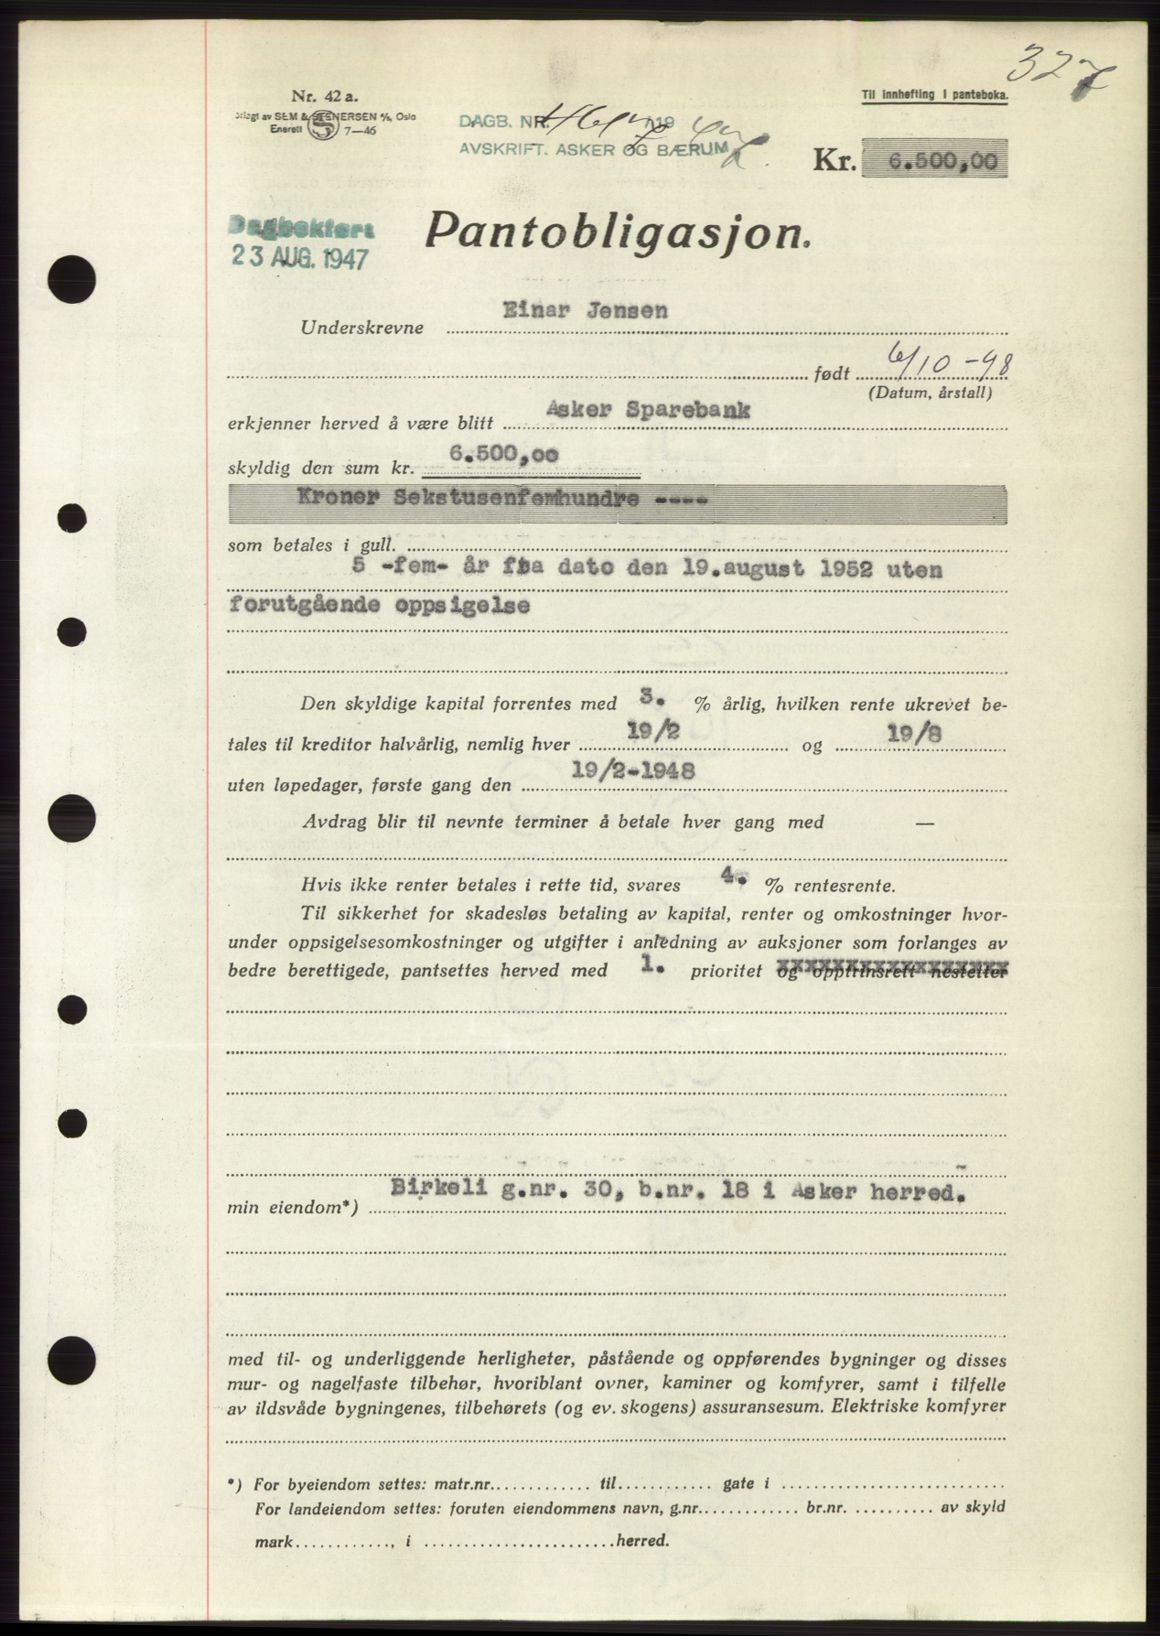 327
Nr. 42 a.
Til innhefting i panteboka.
Forlagt av SEM & STENERSEN A/S, Oslo
Enerett 7—46
DAGB. NR. /19 47
AVSKRIFT. ASKER OG BÆRUM
Kr. 6.500,00
Dagbokført
23 AUG. 1947
Pantobligasjon.
Underskrevne Einar Jensen
født 6/10 -98
(Datum, årstall)
erkjenner herved å være blitt Asker Sparebank
skyldig den sum kr. 6.500,00
Kroner Sekstusenfemhundre ----
som betales i gull.
5 -fem- år fra dato den 19.august 1952 uten
forutgående oppsigelse
Den skyldige kapital forrentes med 3. % årlig, hvilken rente ukrevet be-
tales til kreditor halvårlig, nemlig hver 19/2 og 19/8
uten løpedager, første gang den 19/2-1948
Avdrag blir til nevnte terminer å betale hver gang med —
Hvis ikke renter betales i rette tid, svares 4. % rentesrente.
Til sikkerhet for skadesløs betaling av kapital, renter og omkostninger hvor-
under oppsigelsesomkostninger og utgifter i anledning av auksjoner som forlanges av
bedre berettigede, pantsettes herved med 1. prioritet og opptrinsrett nestetter
min eiendom*) Birkeli g.nr. 30, b.nr. 18 i Asker herred.
med til- og underliggende herligheter, påstående og oppførendes bygninger og disses
mur- og nagelfaste tilbehør, hvoriblant ovner, kaminer og komfyrer, samt i tilfelle
av ildsvåde bygningenes, tilbehørets (og ev. skogens) assuransesum. Elektriske komfyrer
*) For byeiendom settes: matr.nr. til gate i
For landeiendom settes: foruten eiendommens navn, g.nr. br.nr. av skyld
mark , i herred.